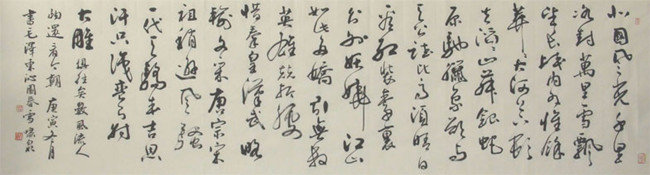 北国风光千里
冰封萬里雪飄
望长城内外惟餘
莽莽大河上下頓
失滔滔山舞銀蛇
原馳蠟象欲与
天公试比高須晴日
看红裝素裹
分外妖嬈江山
如此多嬌引無数
英雄競折腰
惜秦皇漢武略
输文采唐宗宋
祖稍逊风騷
一代天驕成吉思
汗只識彎弓射
大雕 俱往矣数風流人
物還看今朝 庚寅 月
書毛澤東沁園春雪